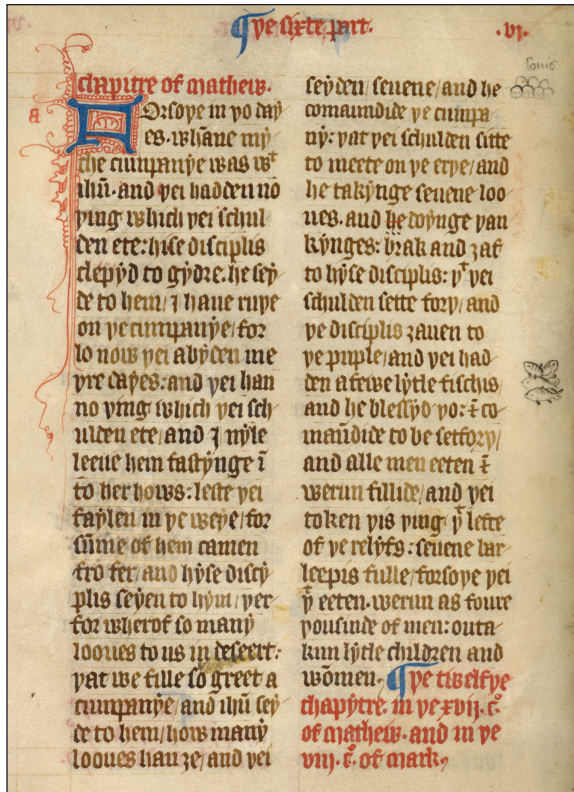 ¶ ye sixte part. .vj.
chapitre of mathew.
a
Forsoþe in yo day
es. whāne my
che cumpanye was wt
ihū. and yei hadden no
ying which yei schul
den ete: hise disciplis
clepyd to gydre. he sey
de to hem, I haue ruye
on ye cumpanye, for
lo now yei abyden me
yre dayes: and yei han
no ying which yei sch
ulden ete, and I nyle
leeue hem fastynge ī
to her hows: leste yei
faylen in ye weye, for
sūme of hem camen
fro fer, and hyse discy
plis seyen to hym, yer
for wherof so many
looues to us in deseert:
yat we fille so greet a
cumpanye, and ihū sey
de to hem, how many
looues han ze, and yei
seyden, seuene, and he
comaundide ye cumpa
ny: yat yei schulden sitte
to meete on ye erye, and
he takynge seuene loo
ues. and he doynge yan
kynges: brak and zaf
to hyse disciplis: yt yei
schulden sette fory, and
ye disciplis zauen to
ye puple, and yei had
den a fewe lytle fischis,
and he blessyd yo: ⁊ co
maūdide to be set fory,
and alle men eeten ⁊
werun fillide, and yei
token yis ying yt lefte
of ye relyfs: seuene bar
leepis fulle, forsoye yei
yt eeten. werun as foure
yousinde of men: outa
kun lytle children and
wōmen. ¶ ye twelfye
chapytre. in ye xvij. c̄.
of mathew. and in ye
viij. c̄. of mark,